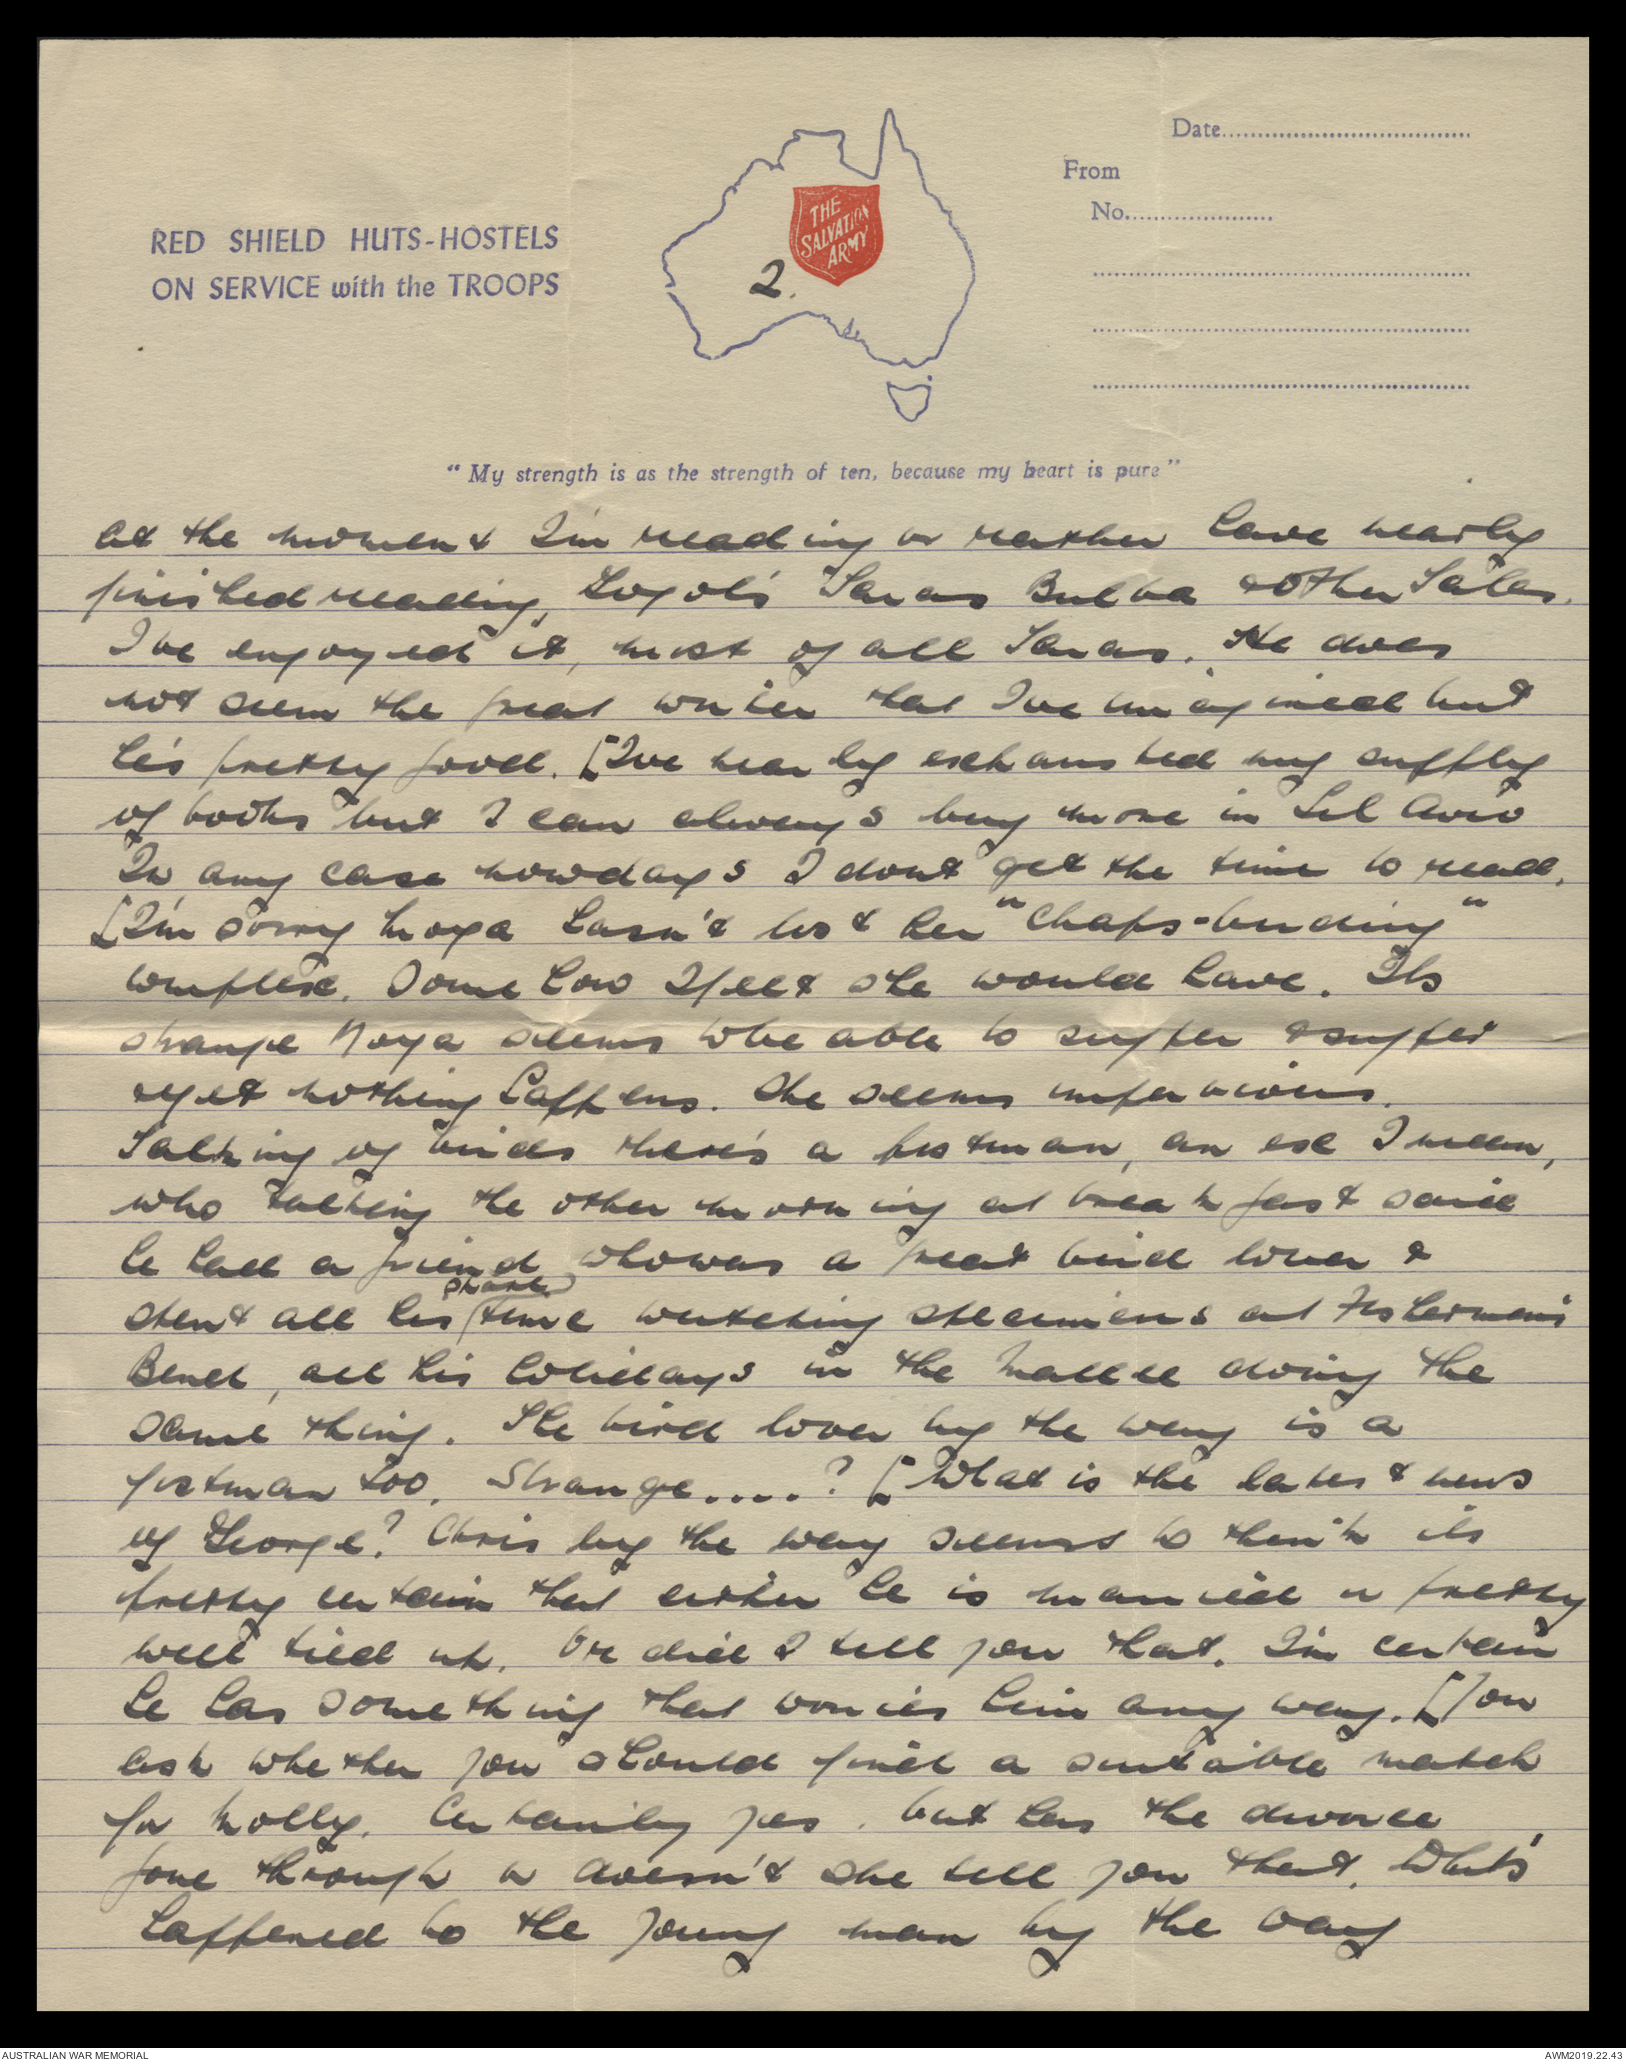 Date
From
No.
RED SHIELD HUTS-HOSTELS
ON SERVICE with the TROOPS
THE
SALVATION
ARMY
2.
"My strength is as the strength of ten, because my heart is pure"
At the moment I'm reading or rather have nearly
finished reading, Gogol's Taras Bulba & Other Tales.
I've enjoyed it, most of all Taras. He does
not seem the great writer that I've imagined but
he's pretty good. [I've nearly exhausted my supply
of books but I can always buy more in Tel Aviv
In any case nowdays I dont get the time to read.
[I'm sorry Moya hasn't lost her "Chaps-binding"
complex. Somehow I felt she would have. Its
strange Moya seems to be able to suffer & suffer
& yet nothing happens. She seems impervious.
Talking of birds there's a postman, an ex I mean,
who talking the other morning at breakfast said
he had a friend who was a great bird lover &
spent all his (spare) time watching steamers at Fishermens
Bend, all his holidays in the Mallee doing the
same thing. The bird lover by the way is a
postman too. Strange....? [What is the latest news
of George? Chris by the way seems to think its
pretty certain that either he is married or pretty
well tied up. Or did I tell you that. I'm certain
he has something that worries him any way. [You
ask whether you should find a suitable match
for Molly. Certainly yes. but has the divorce
gone through or doesn't she tell you that. What's
happened to the young man by the way
AUSTRALIAN WAR MEMORIAL
AWM2019.22.43